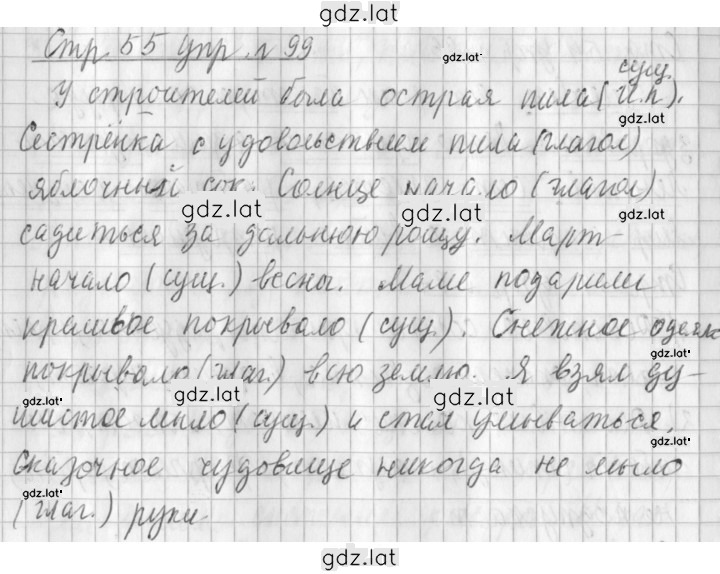 gdz.lat
Стр. 55 упр. №99
gdz.lat
сущ.
У строителей была острая пила (И.п).
gdz.lat
Сестрёнка с удовольствием пила (глагол)
gdz.lat
яблочный сок. Солнце начало (глагол)
gdz.lat gdz.lat
садиться за дальнюю рощу. Март -
начало (сущ.) весны. Маме подарили
красивое покрывало (сущ.). Снежное одеяло
gdz.lat
покрывало (глаг.) всю землю. Я взял ду-
gdz.lat gdz.lat
шистое мыло (сущ.) и стал умываться.
gdz.lat
Сказочное чудовище никогда не мыло
gdz.lat gdz.lat
(глаг.) руки.
gdz.lat